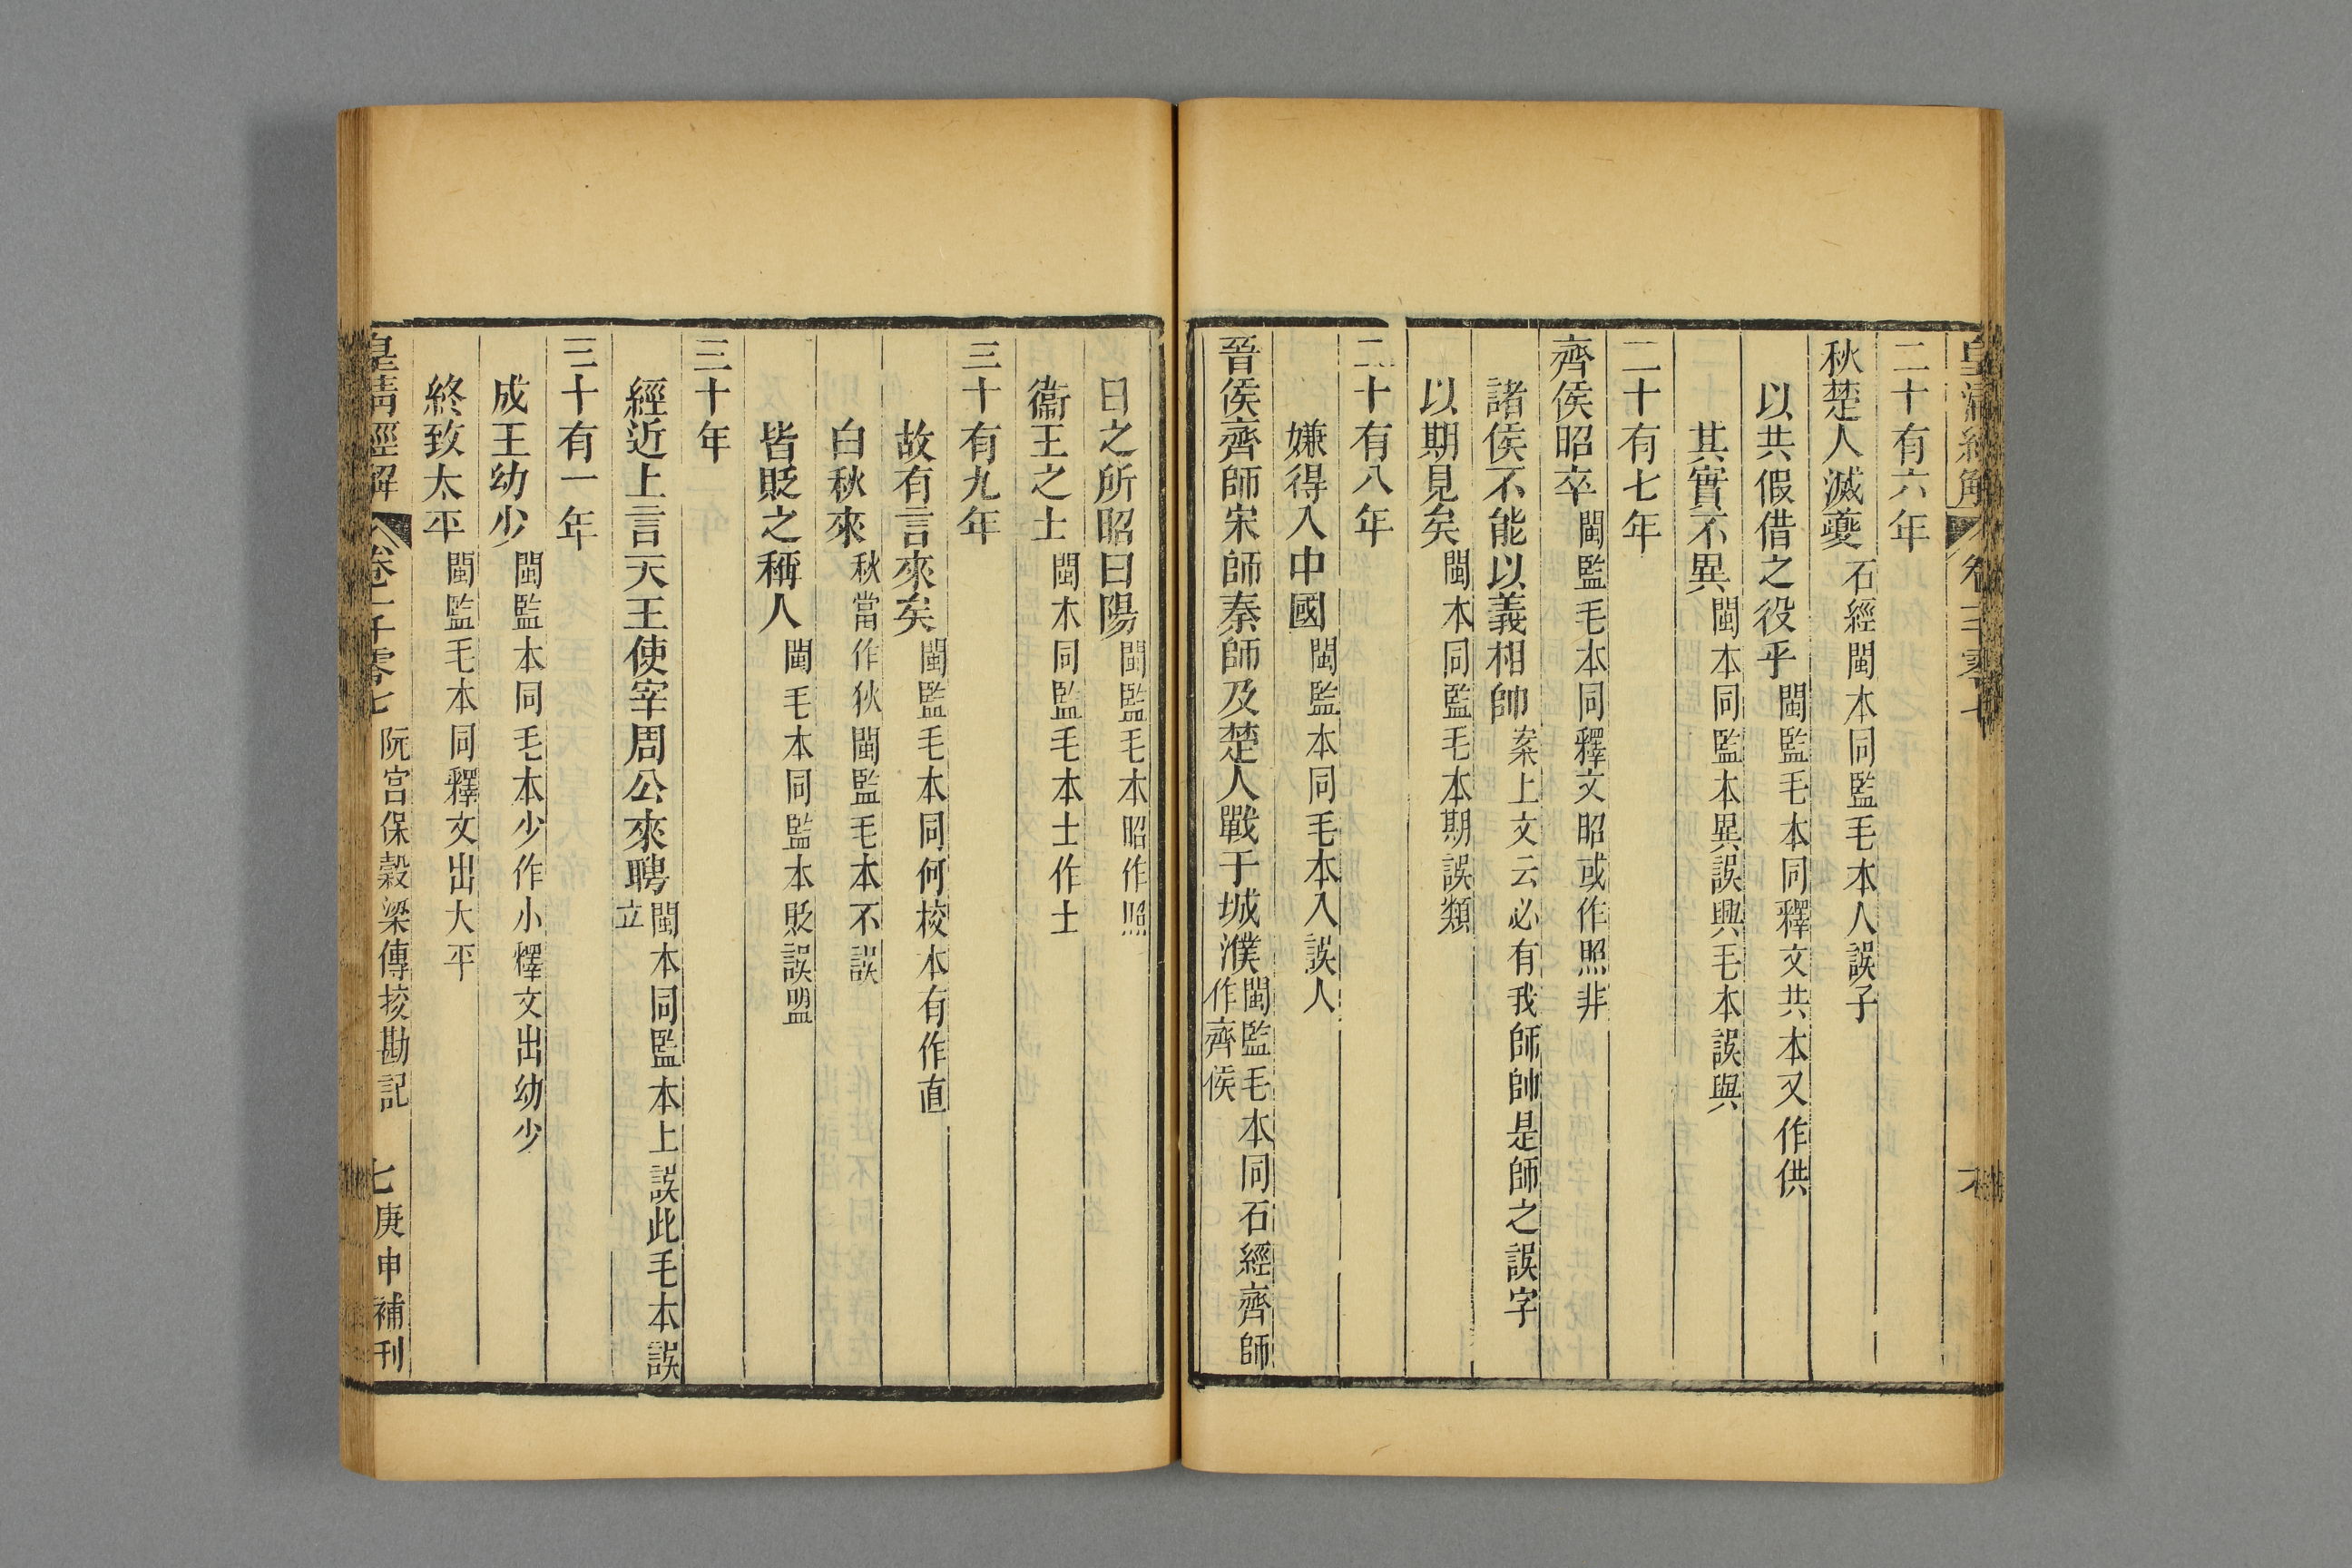 二十有六年
秋楚人滅夔石經閩本同監毛本人誤子
以共假借之役乎閩監毛本同釋文共本又作供
其實不異閩本同監本異誤興毛本誤與
二十有七年
齊侯昭卒閩監毛本同釋文昭或作照非
諸侯不能以義相帥案上文云必有我師帥是師之誤字
以期見矣閩本同監毛本期誤類
二十有八年
嫌得入中國閩監本同毛本入誤人
晉侯齊師宋師秦師及楚人戰于城濮閩監毛本同石經齊師作齊侯
日之所昭曰陽閩監毛本昭作照
衞王之士閩本同監毛本士作土
三十有九年
故有言來矣閩監毛本同何校本有作直
白秋來秋當作狄閩監毛本不誤
皆貶之稱人閩毛本同監本貶誤盟
三十年
經近上言天王使宰周公來聘閩本同監本上誤此毛本誤立
三十有一年
成王幼少閩監本同毛本少作小釋文出幼少
終致太平閩監毛本同釋文出大平
皇清經解 卷一千零七 阮宮保穀梁傳挍勘記 七 庚申補刊